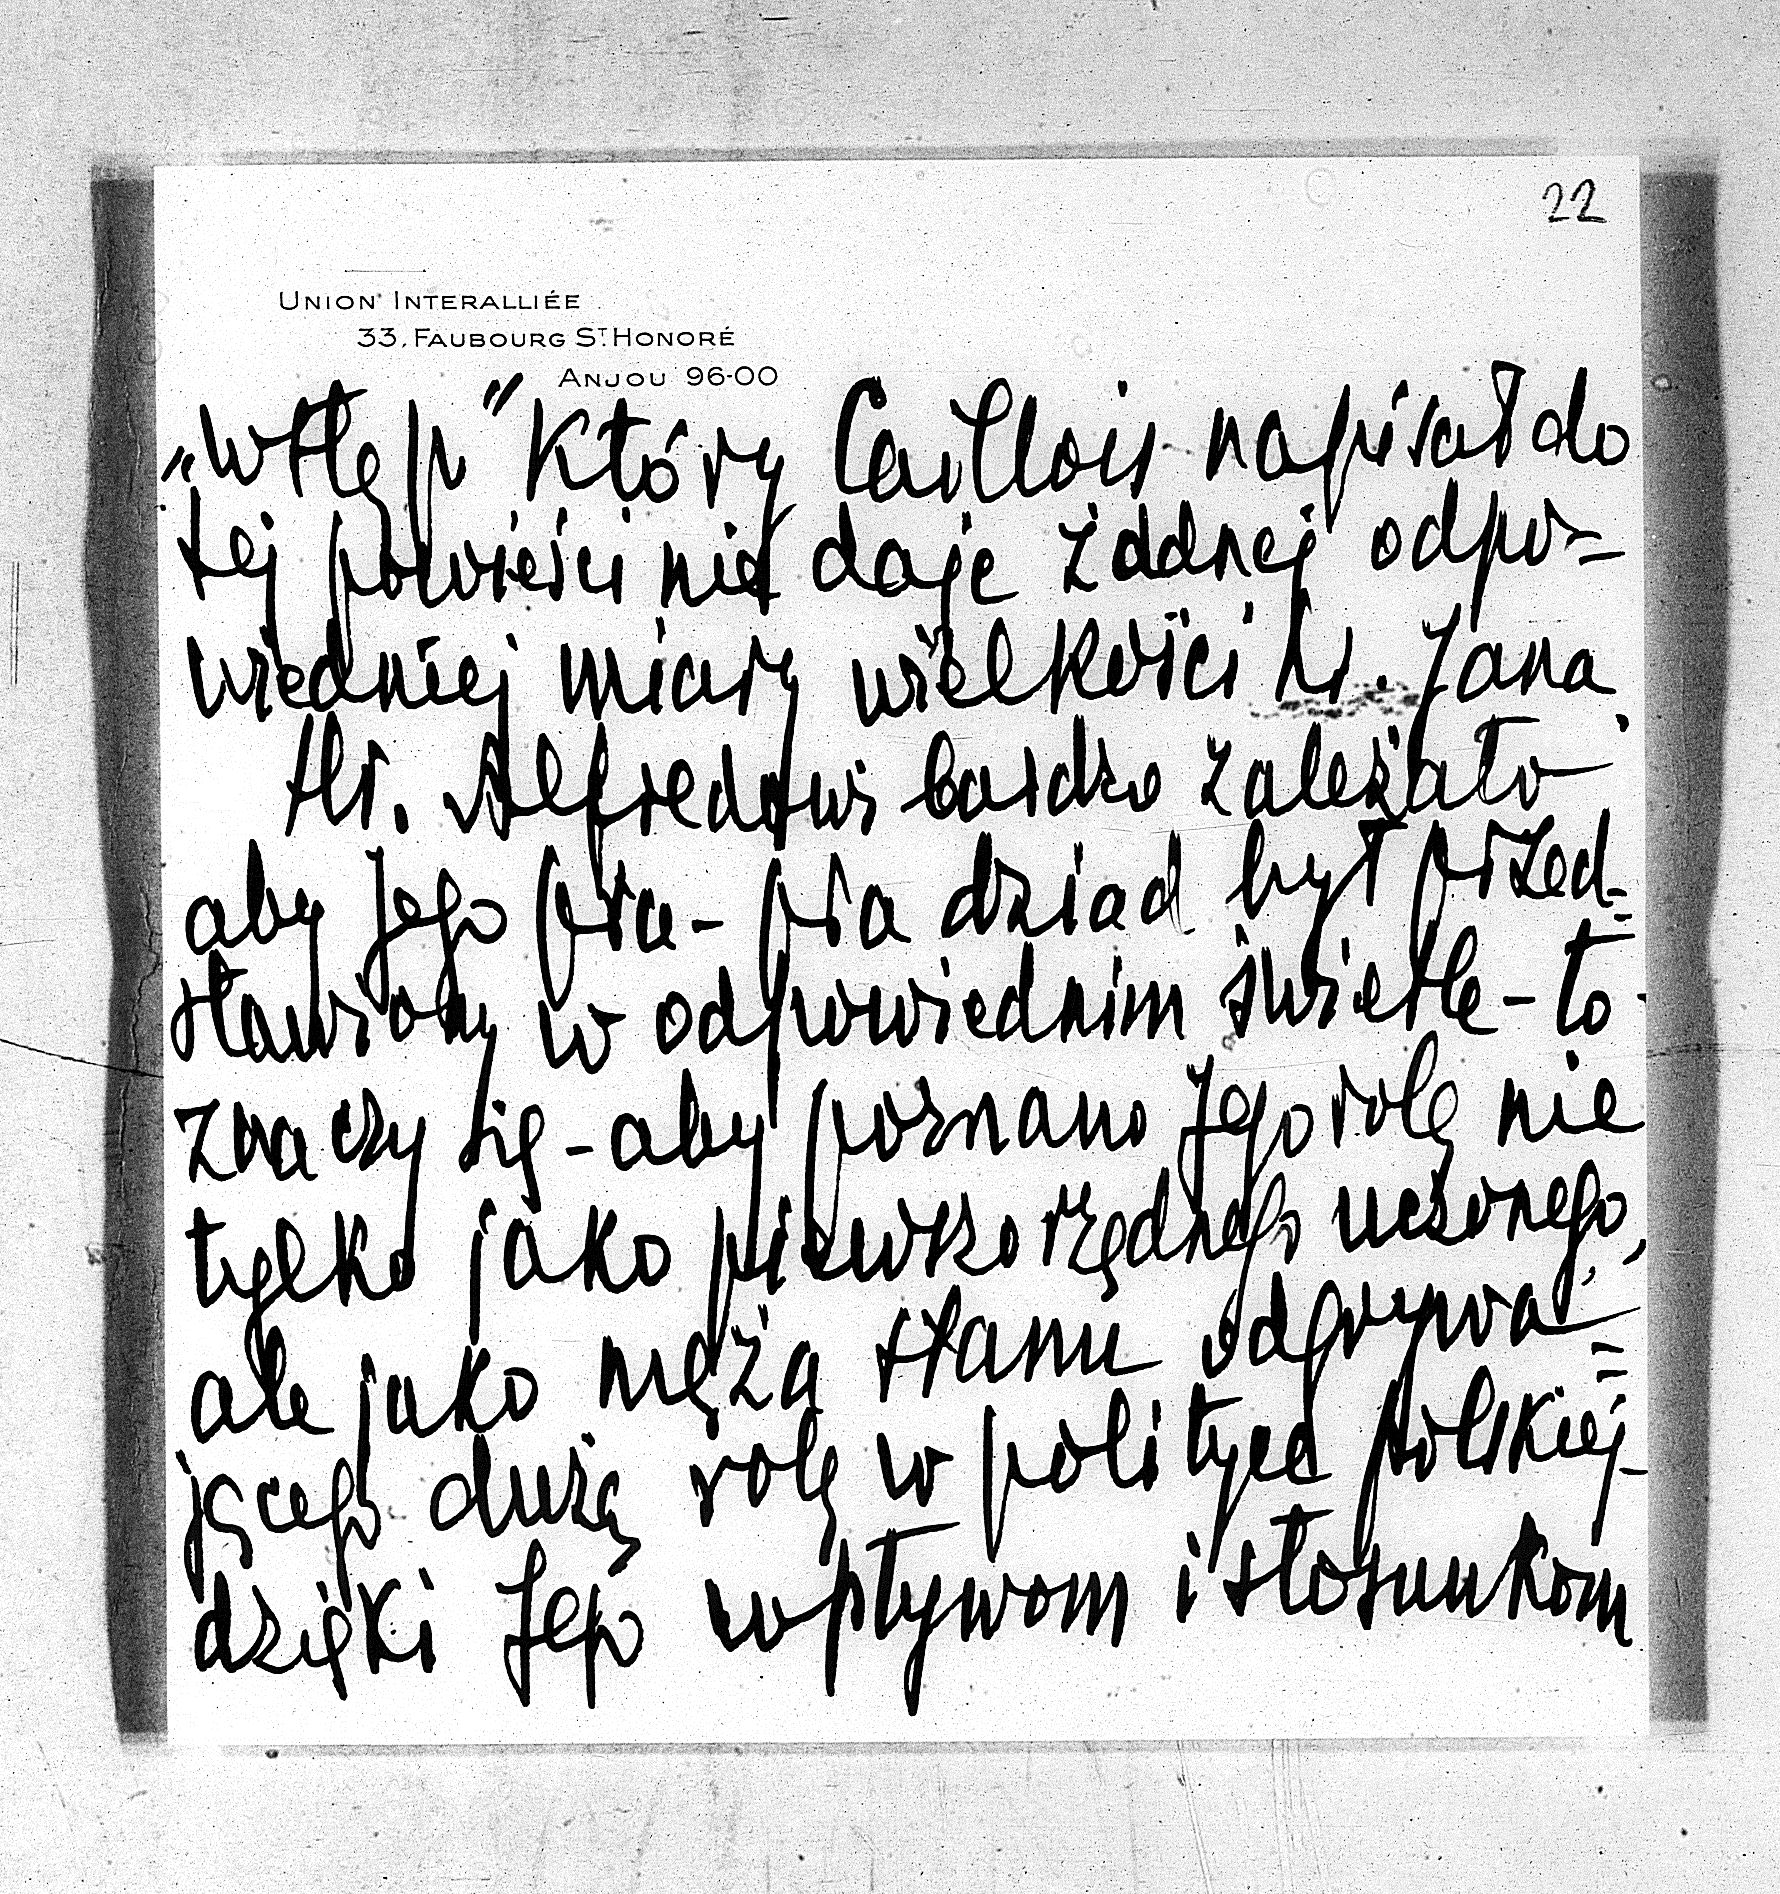 22
UNION INTERALLIÉE
33, FAUBOURG ST. HONORÉ
ANJOU 96-00
„Wstęp” który Caillois napisał do
tej powieści nie daje żadnej odpo=
wiedniej miary wielkości hr. Jana
Hr. Alfredowi bardzo zależało
aby Jego pra-pra dziad był przed=
stawiony w odpowiednim świetle - to
znaczy się - aby poznano Jego rolę nie
tylko jako pierwszorzędnego uczonego,
ale jako męża stanu odgrywa=
jącego dużą rolę w polityce polskiej -
dzięki Jego wpływom i stosunkom